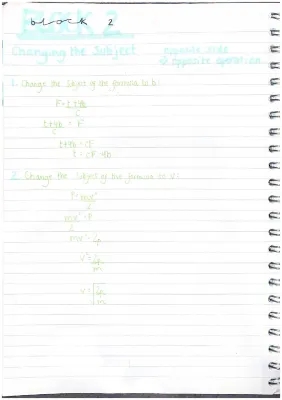 block 2
Changing the Subject
opposite side
& opposite operation
1. Change the subject of the formula to t:
F = t+4b
C
t+4b = F
C
t+4b = CF
t = CF - 4b
2. Change the subject of the formula to v:
P = mv²
2
mv² = P
2
mv² = 2P
v² = 2P
m
v = √2P
m